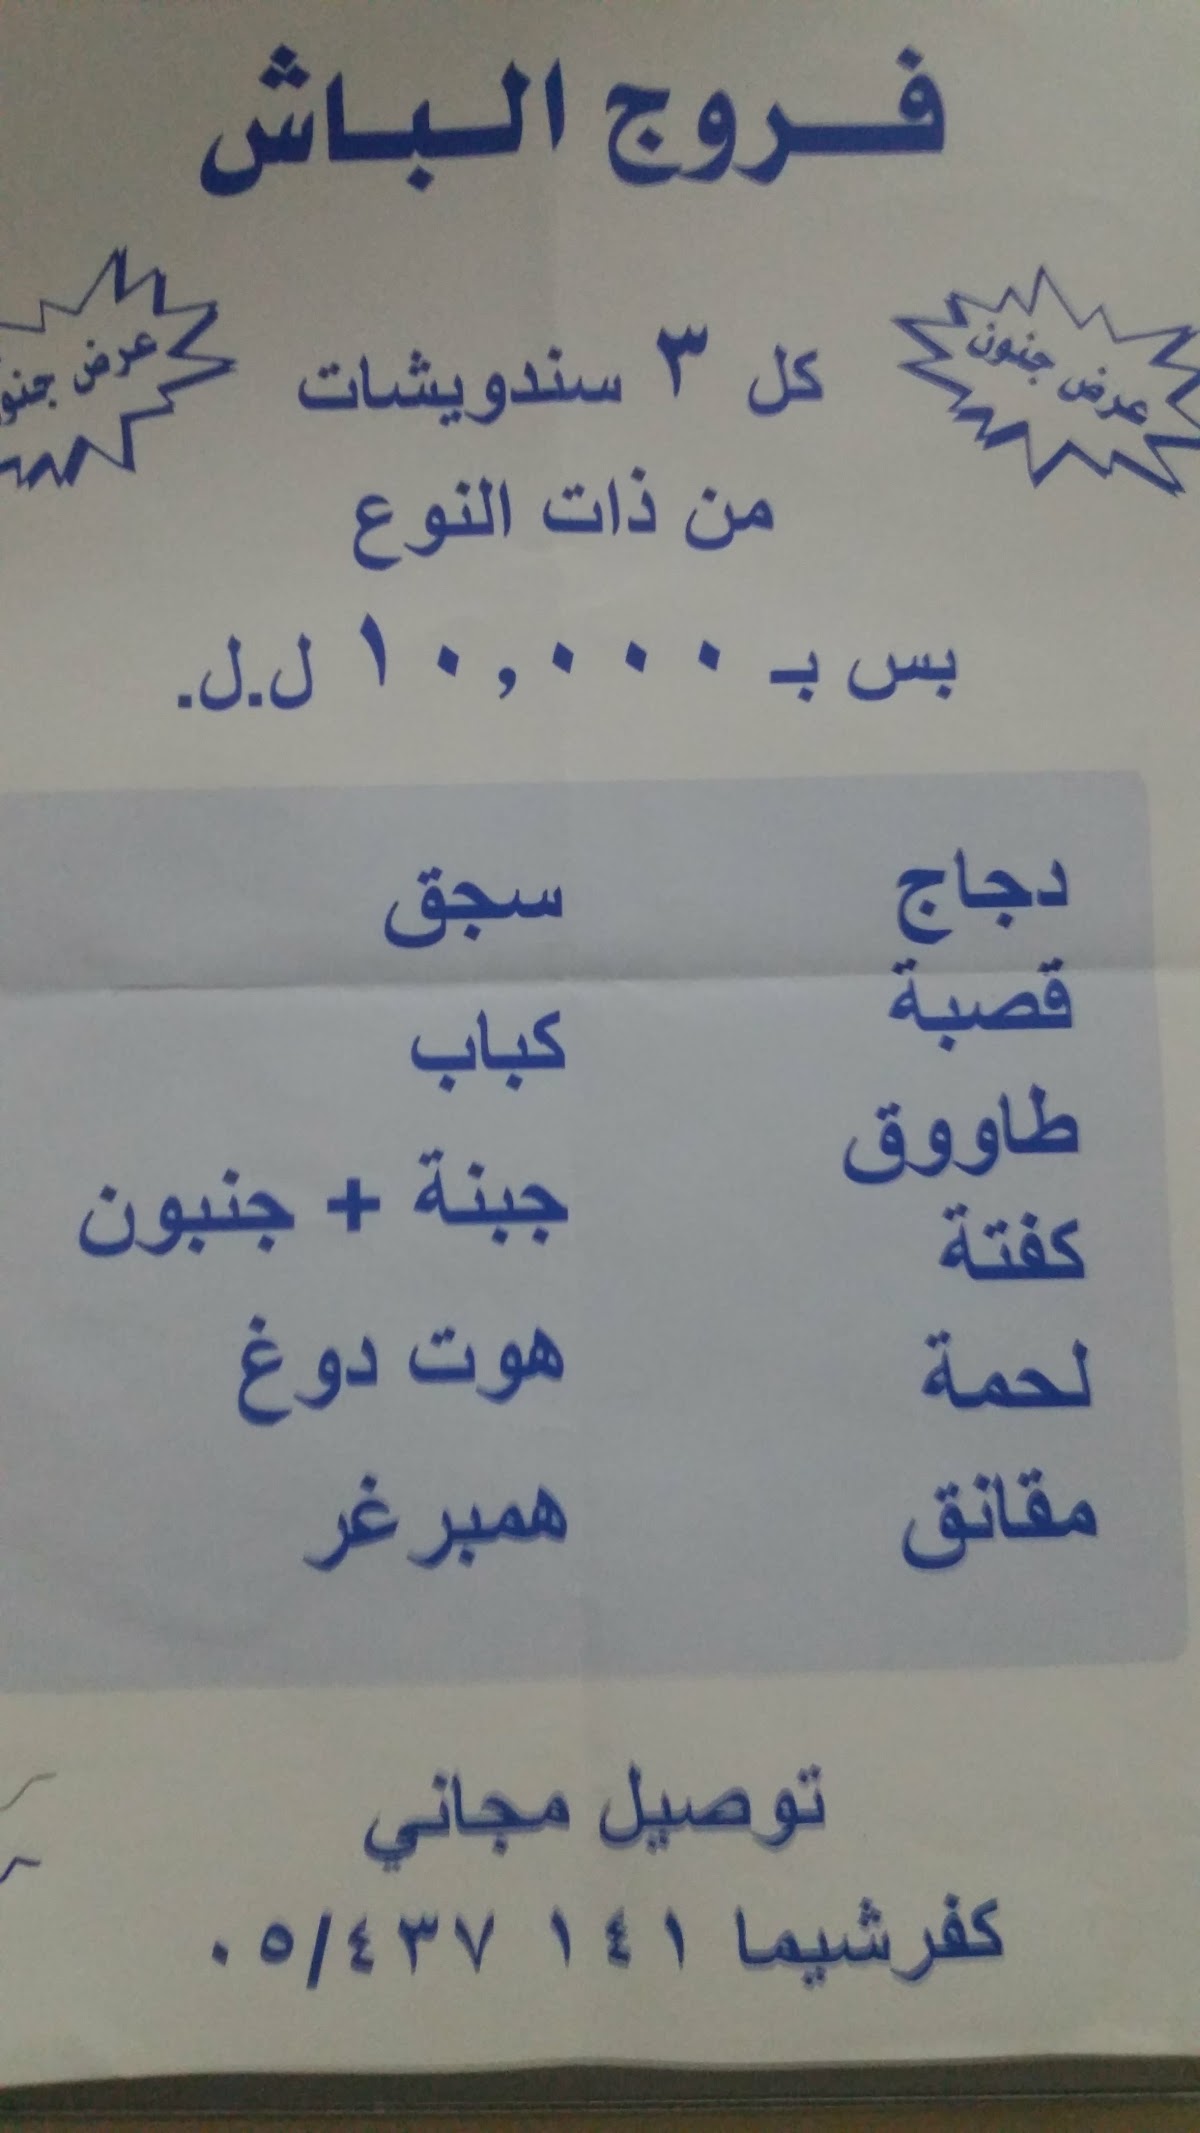 فروج الباش
عرض جنون
كل ٣ سندويشات
عرض جنو
من ذات النوع
بس بـ ١٠,٠٠٠ ل.ل.
دجاج
قصبة
طاووق
كفتة
لحمة
مقانق
سجق
كباب
جبنة + جنبون
هوت دوغ
همبرغر
توصيل مجاني
كفرشيما ١٤١ ٠٥/٤٣٧